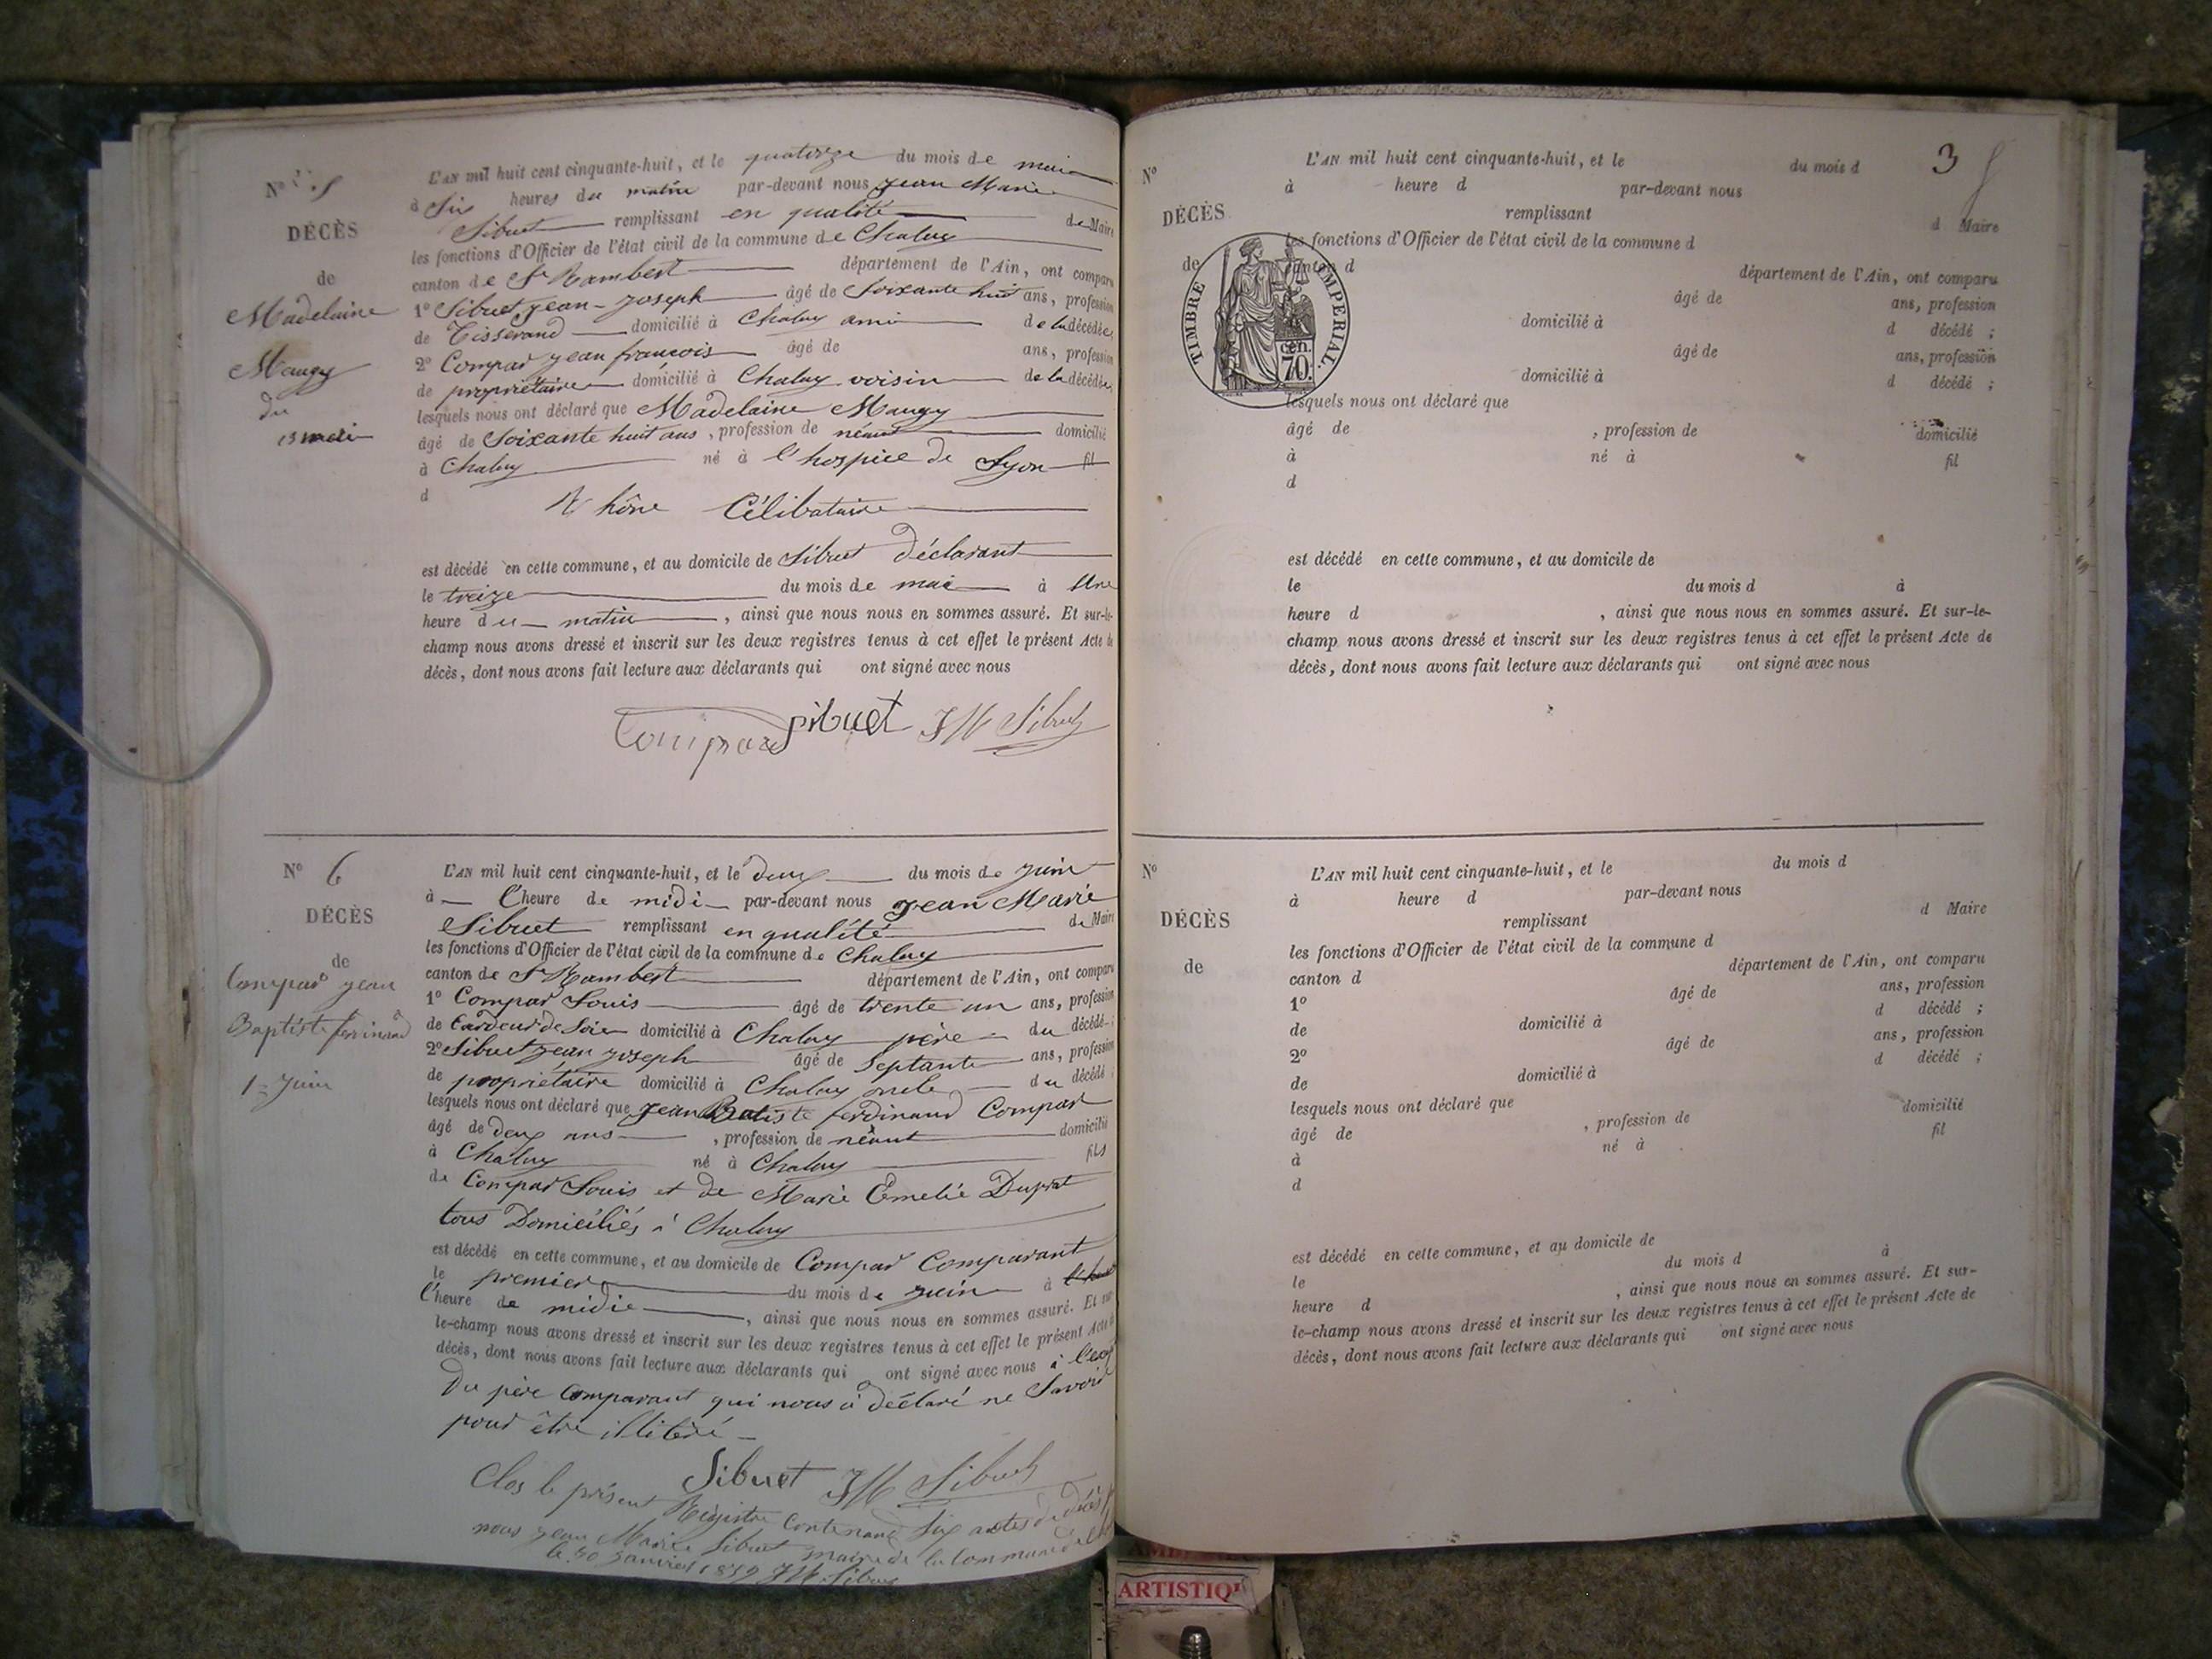 N° 5
DÉCÈS
de
Madelaine
Maugy
du
13 mai
L'AN mil huit cent cinquante-huit, et le quatorze du mois de mai
à Six heures du matin par-devant nous Jean Marie
Sibuet remplissant en qualité de Maire
les fonctions d'Officier de l'état civil de la commune de Chaley
canton de St Rambert département de l'Ain, ont comparu
1° Sibuet, Jean-Joseph âgé de Soixante huit ans, profession
de Tisserand domicilié à Chaley ami de la décédée,
2° Compar Jean françois âgé de ans, profession
de propriétaire domicilié à Chaley voisin de la décédée,
lesquels nous ont déclaré que Madelaine Maugy
âgé de Soixante huit ans, profession de néant domicilié
à Chaley né à l'hospice de Lyon fil
d Rhône Célibataire
est décédé en cette commune, et au domicile de Sibuet déclarant
le treize du mois de mai à Une
heure du matin, ainsi que nous nous en sommes assuré. Et sur-le-
champ nous avons dressé et inscrit sur les deux registres tenus à cet effet le présent Acte de
décès, dont nous avons fait lecture aux déclarants qui ont signé avec nous
Compar Sibuet JM Sibuet
N° 6
DÉCÈS
de
Compar Jean
Baptiste
1er Juin
L'AN mil huit cent cinquante-huit, et le deux du mois de Juin
à L'heure de midi par-devant nous Jean Marie
Sibuet remplissant en qualité de Maire
les fonctions d'Officier de l'état civil de la commune de Chaley
canton de St Rambert département de l'Ain, ont comparu
1° Compar Louis âgé de trente un ans, profession
de Cardeur de Soie domicilié à Chaley père du décédé ;
2° Sibuet Jean Joseph âgé de Septante ans, profession
de propriétaire domicilié à Chaley du décédé ;
lesquels nous ont déclaré que Jean Batiste ferdinand Compar
âgé de deux ans, profession de néant domicilié
à Chaley né à Chaley fils
de Compar Louis et de Marie Emelie Duprat
tous Domiciliés à Chaley
est décédé en cette commune, et au domicile de Compar Comparant
le premier du mois de Juin à
l'heure de midie, ainsi que nous nous en sommes assuré. Et sur-
le-champ nous avons dressé et inscrit sur les deux registres tenus à cet effet le présent Acte de
décès, dont nous avons fait lecture aux déclarants qui ont signé avec nous à
Du père Comparant qui nous à déclaré ne Savoir
pour être illitéré
Sibuet JM Sibuet
Clos le présent Registre Contenant Six actes de décès
nous Jean Marie Sibuet maire de la Commune de
le 30 Janvier 1859 JM Sibuet
3
N°
DÉCÈS
de
TIMBRE IMPERIAL.
cen.
70.
L'AN mil huit cent cinquante-huit, et le du mois d
à heure d par-devant nous
remplissant d Maire
les fonctions d'Officier de l'état civil de la commune d
canton d département de l'Ain, ont comparu
âgé de ans, profession
domicilié à d décédé ;
âgé de ans, profession
domicilié à d décédé ;
lesquels nous ont déclaré que
âgé de , profession de domicilié
à né à fil
d
est décédé en cette commune, et au domicile de
le du mois d à
heure d , ainsi que nous nous en sommes assuré. Et sur-le-
champ nous avons dressé et inscrit sur les deux registres tenus à cet effet le présent Acte de
décès, dont nous avons fait lecture aux déclarants qui ont signé avec nous
N°
DÉCÈS
de
L'AN mil huit cent cinquante-huit, et le du mois d
à heure d par-devant nous
remplissant d Maire
les fonctions d'Officier de l'état civil de la commune d
canton d département de l'Ain, ont comparu
1° âgé de ans, profession
de domicilié à d décédé ;
2° âgé de ans, profession
de domicilié à d décédé ;
lesquels nous ont déclaré que
âgé de , profession de domicilié
à né à fil
d
est décédé en cette commune, et au domicile de
le du mois d à
heure d , ainsi que nous nous en sommes assuré. Et sur-
le-champ nous avons dressé et inscrit sur les deux registres tenus à cet effet le présent Acte de
décès, dont nous avons fait lecture aux déclarants qui ont signé avec nous
ARTISTIQ